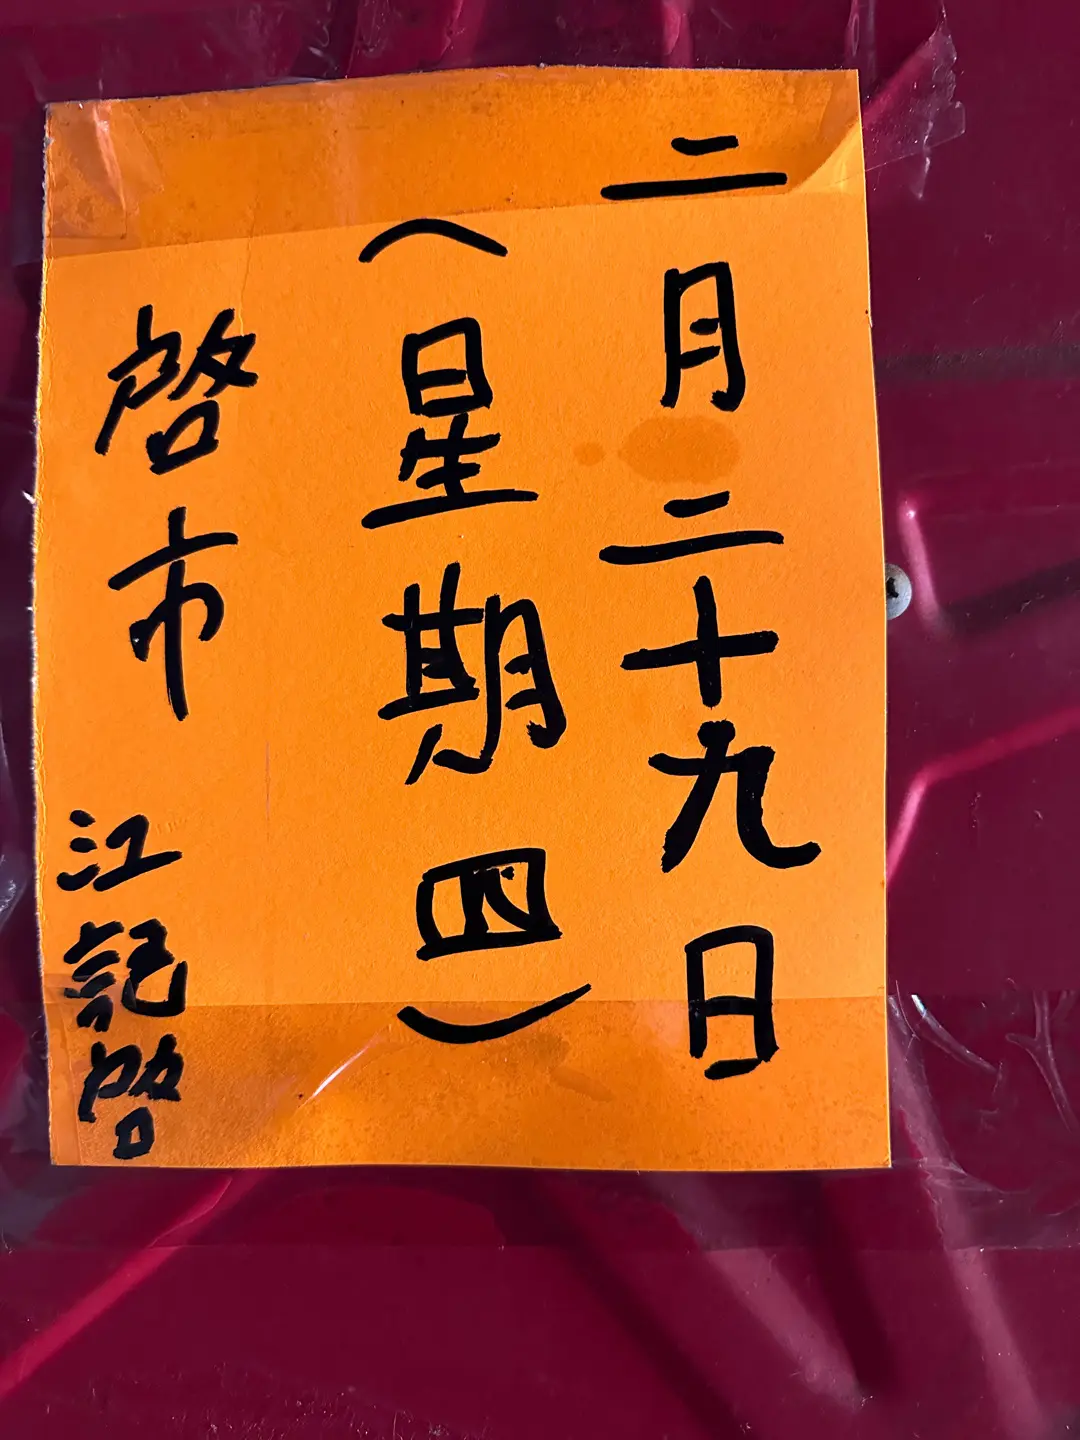 二月二十九日
（星期四）
啓市
江記啓